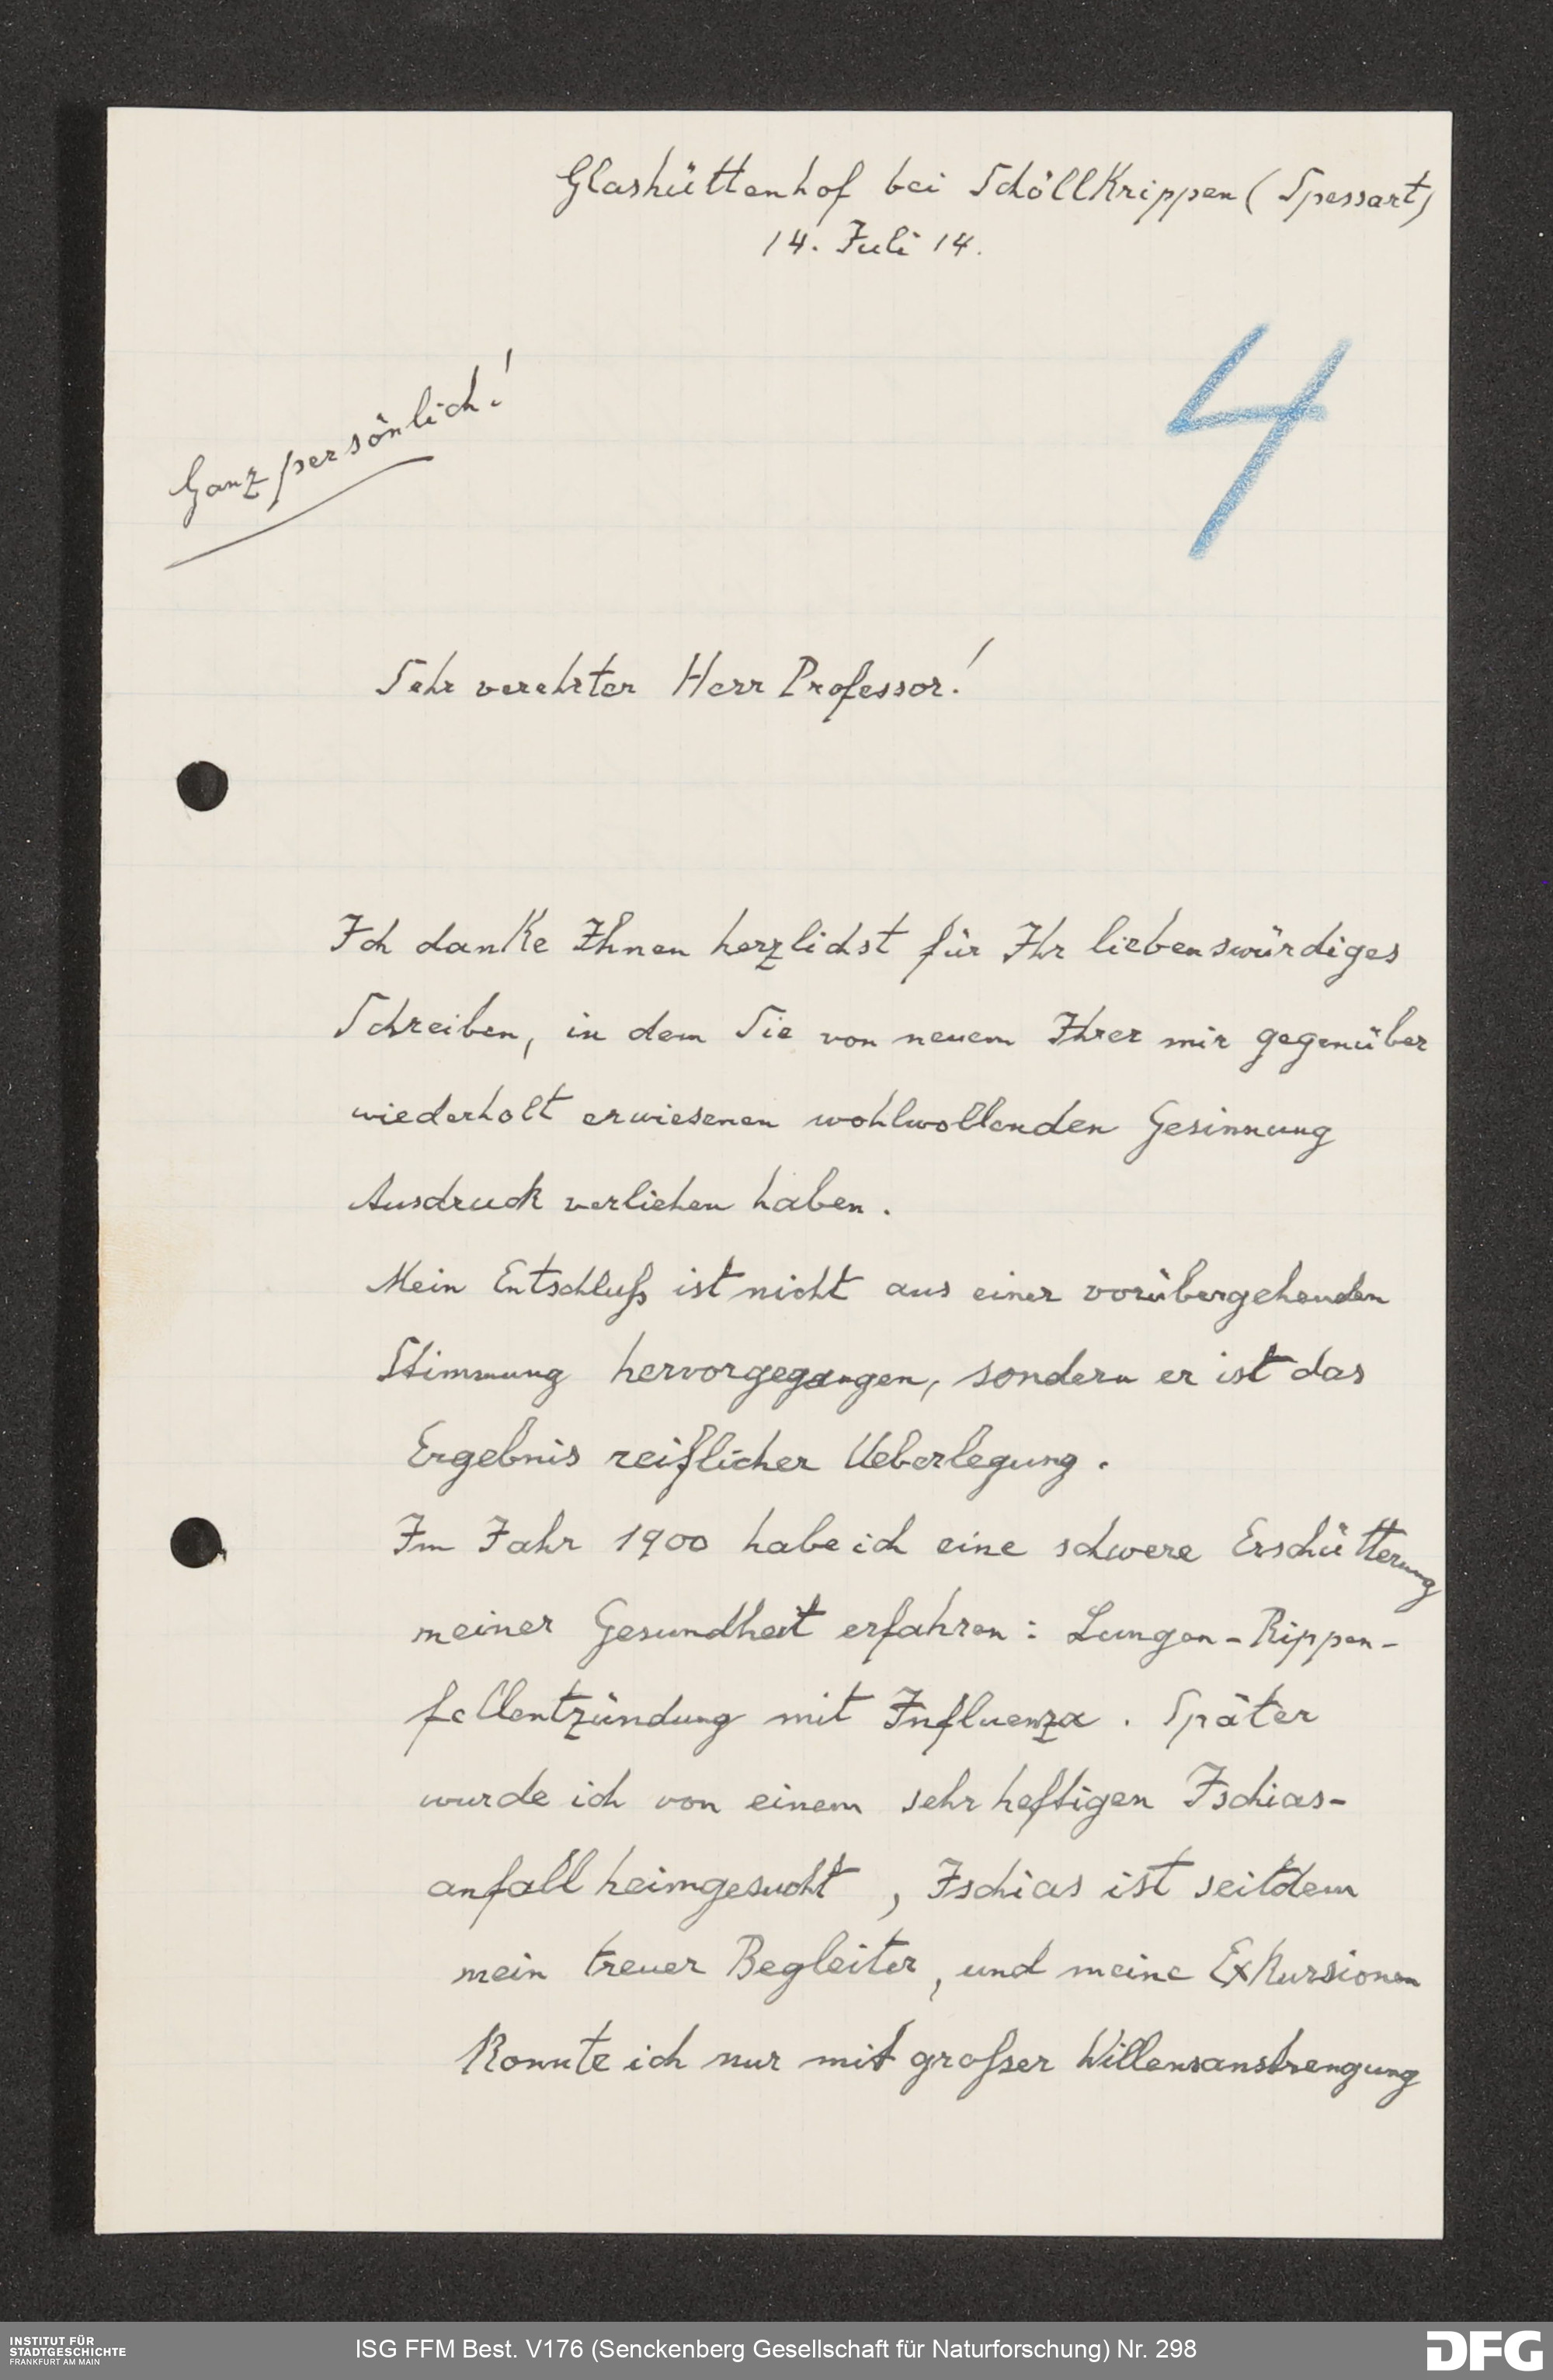 Glashüttenhof bei Schöllkrippen (Spessart)
14. Juli 14.
4
Ganz persönlich!
Sehr verehrter Herr Professor!
Ich danke Ihnen herzlichst für Ihr liebenswürdiges
Schreiben, in dem Sie von neuem Ihrer mir gegenüber
wiederholt erwiesenen wohlwollenden Gesinnung
Ausdruck verliehen haben.
Mein Entschluß ist nicht aus einer vorübergehenden
Stimmung hervorgegangen, sondern er ist das
Ergebnis reiflicher Ueberlegung.
Im Jahr 1900 habe ich eine schwere Erschütterung
meiner Gesundheit erfahren: Lungen-Rippen-
fellentzündung mit Influenza. Später
wurde ich von einem sehr heftigen Ischias-
anfall heimgesucht, Ischias ist seitdem
mein treuer Begleiter, und meine Exkursionen
konnte ich nur mit großer Willensanstrengung
INSTITUT FÜR
STADTGESCHICHTE
FRANKFURT AM MAIN
ISG FFM Best. V176 (Senckenberg Gesellschaft für Naturforschung) Nr. 298
DFG